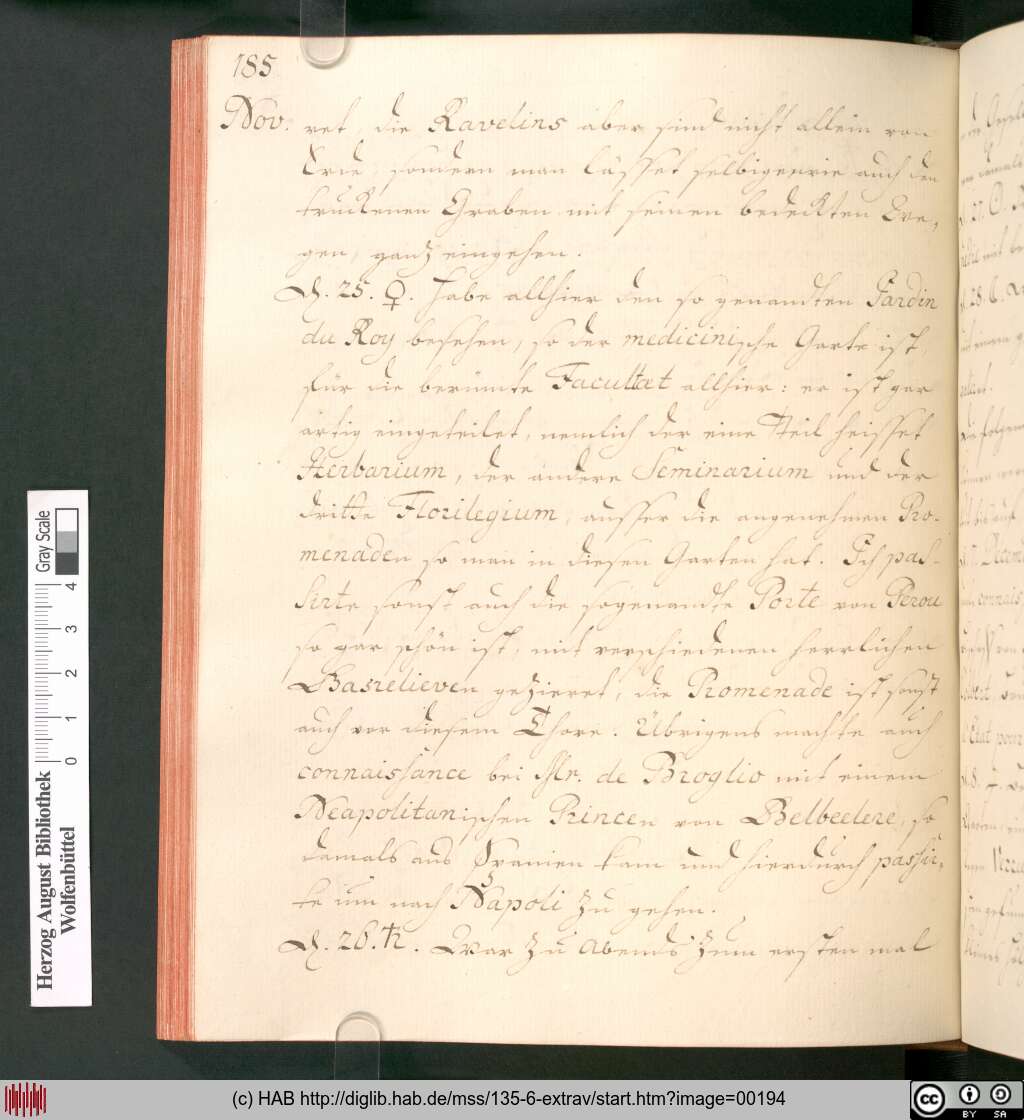 185
Nov. ret, die Ravelins aber sind nicht allein von
Erde, sondern man lässet selbige nie auch den
truckenen Graben mit seinen bedeckten We-
gen, ganz eingehen.
D. 25. ♀. Habe allhier den so genandten Jardin
du Roy besehen, so der medicinische Garte ist,
für die berümte Facultæt allhier: er ist gar
artig eingeteilet, nemlich der eine Theil heisset
Herbarium, der andere Seminarium und der
dritte Florilegium, ausser die angenehmen Pro-
menaden so man in diesen Garten hat. Ich pas-
sirte sonst auch die sogenandte Porte von Perou
so gar schön ist, mit verschiedenen herrlichen
Basrelieven gezieret, die Promenade ist sonst
auch vor diesem Thore. Übrigens machte auch
connaissance bei Mr. de Broglio mit einem
Neapolitanischen Princen von Belbedere, so
damals aus Spanien kam und hierdurch passir-
te um nach Napoli zu gehen.
D. 26. ♄. War zu Abends zum ersten mal
Herzog August Bibliothek
Wolfenbüttel
0 1 2 3 4
Gray Scale
(c) HAB http://diglib.hab.de/mss/135-6-extrav/start.htm?image=00194
cc BY SA